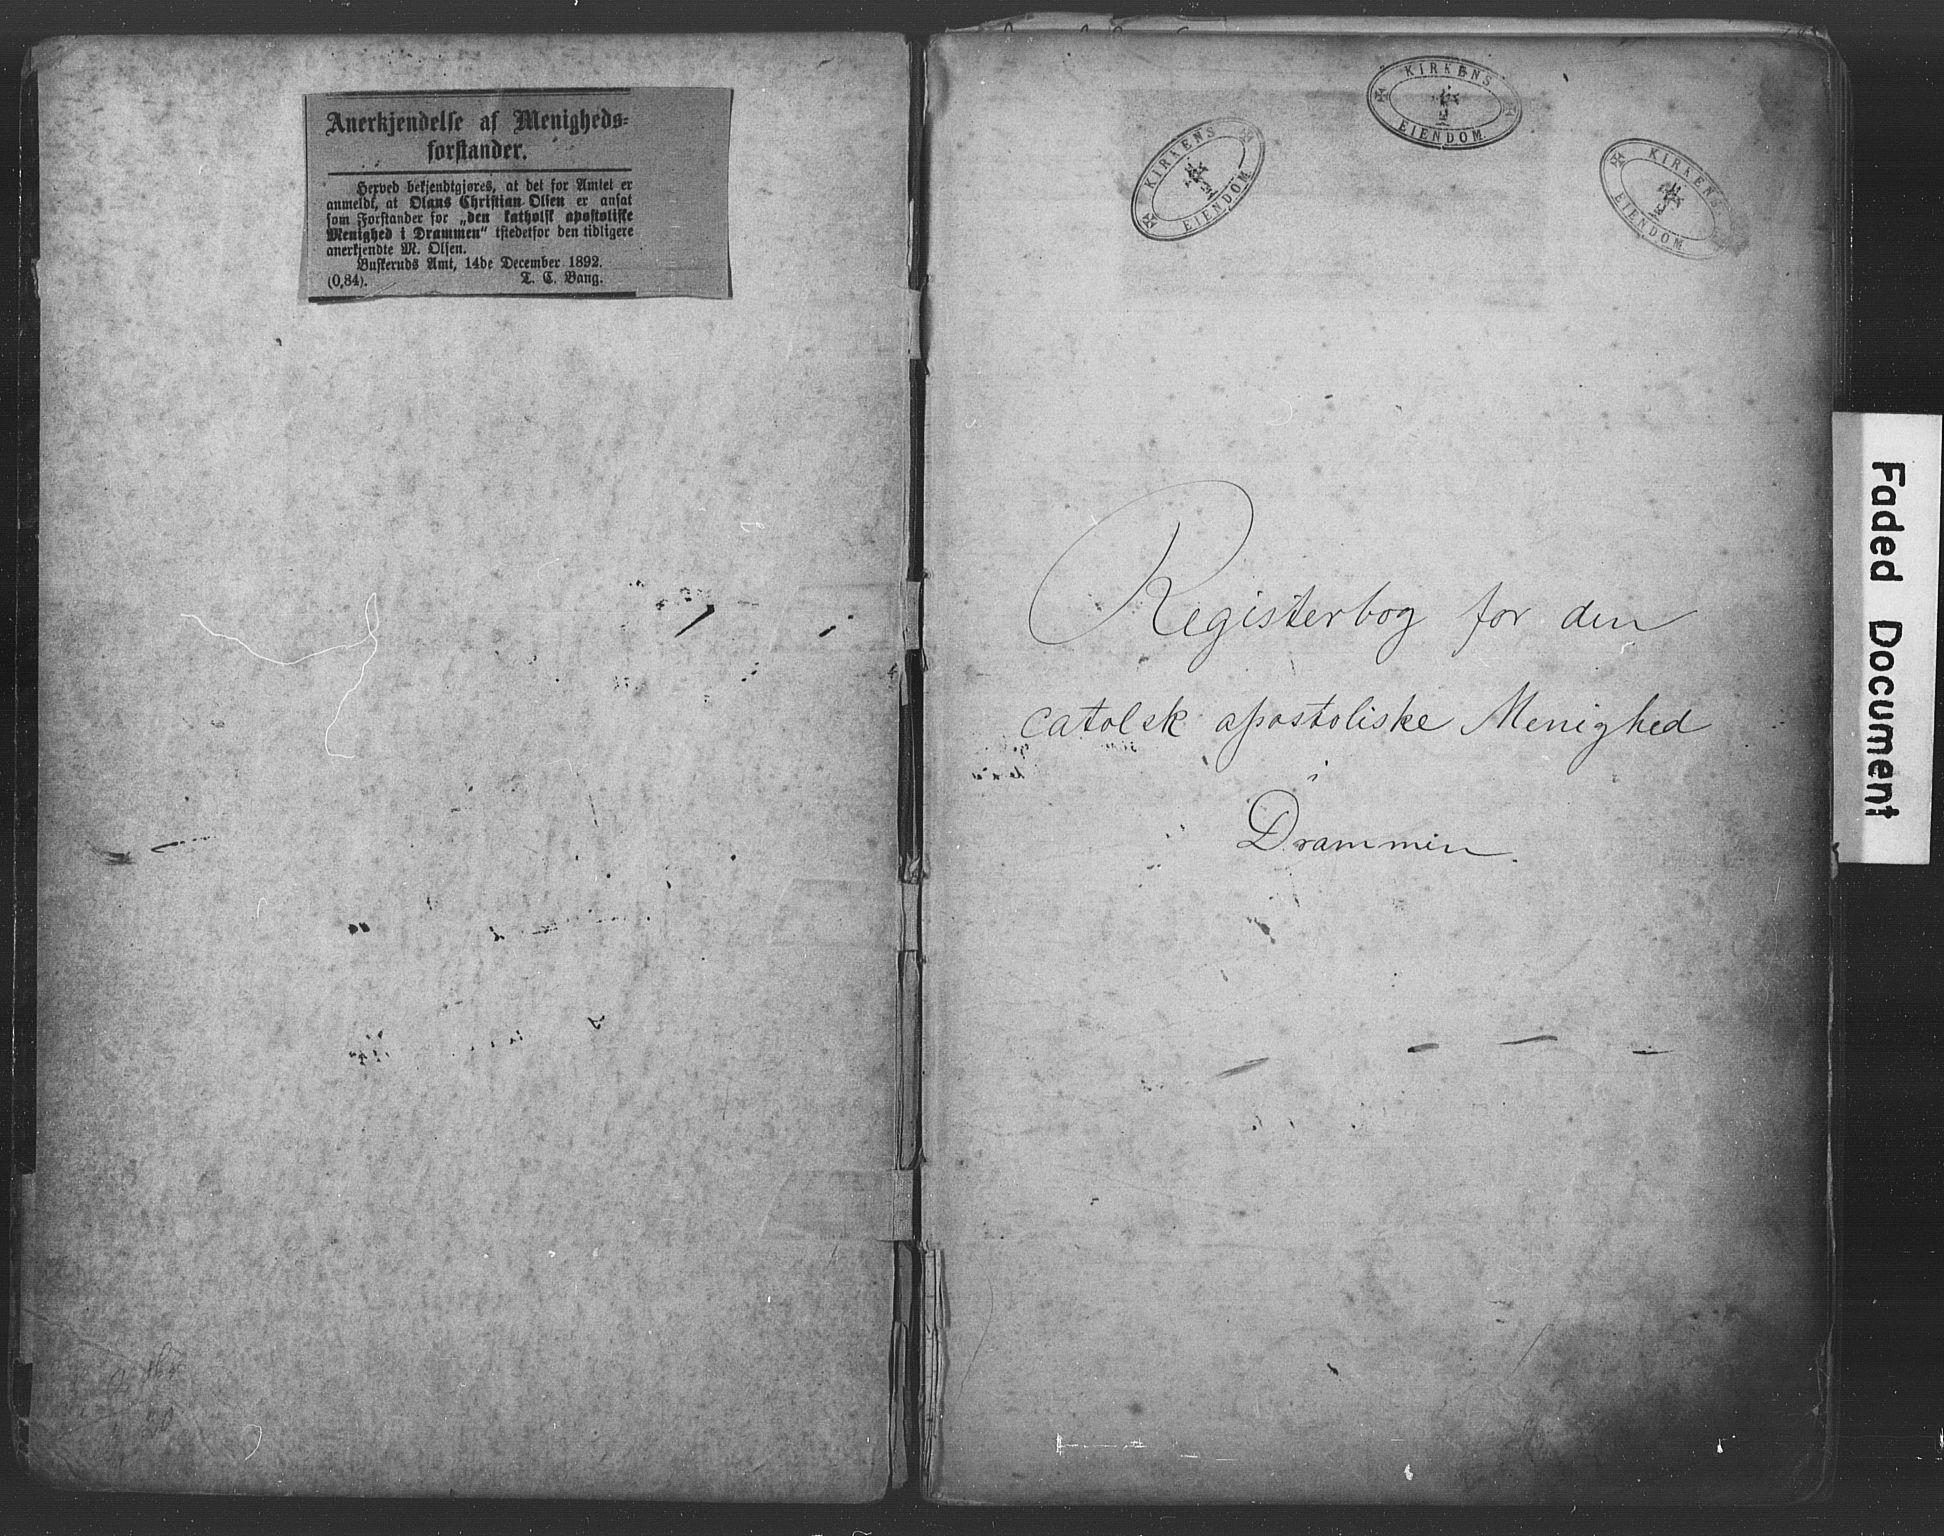 Anerkjendelse af Menigheds-
forstander.
Herved bekjendtgjøres, at det for Amtet er
anmeldt, at Olaus Christian Olsen er ansat
som Forstander for „den katholsk apostoliske
Menighed i Drammen“ istedetfor den tidligere
anerkjendte M. Olsen.
Buskeruds Amt, 14de December 1892.
(0,84). T. C. Bang.
KIRKENS
EIENDOM
KIRKENS
EIENDOM.
KIRKENS
EIENDOM
Registerbog for den
catolsk apostoliske Menighed
i
Drammen.
Faded Document